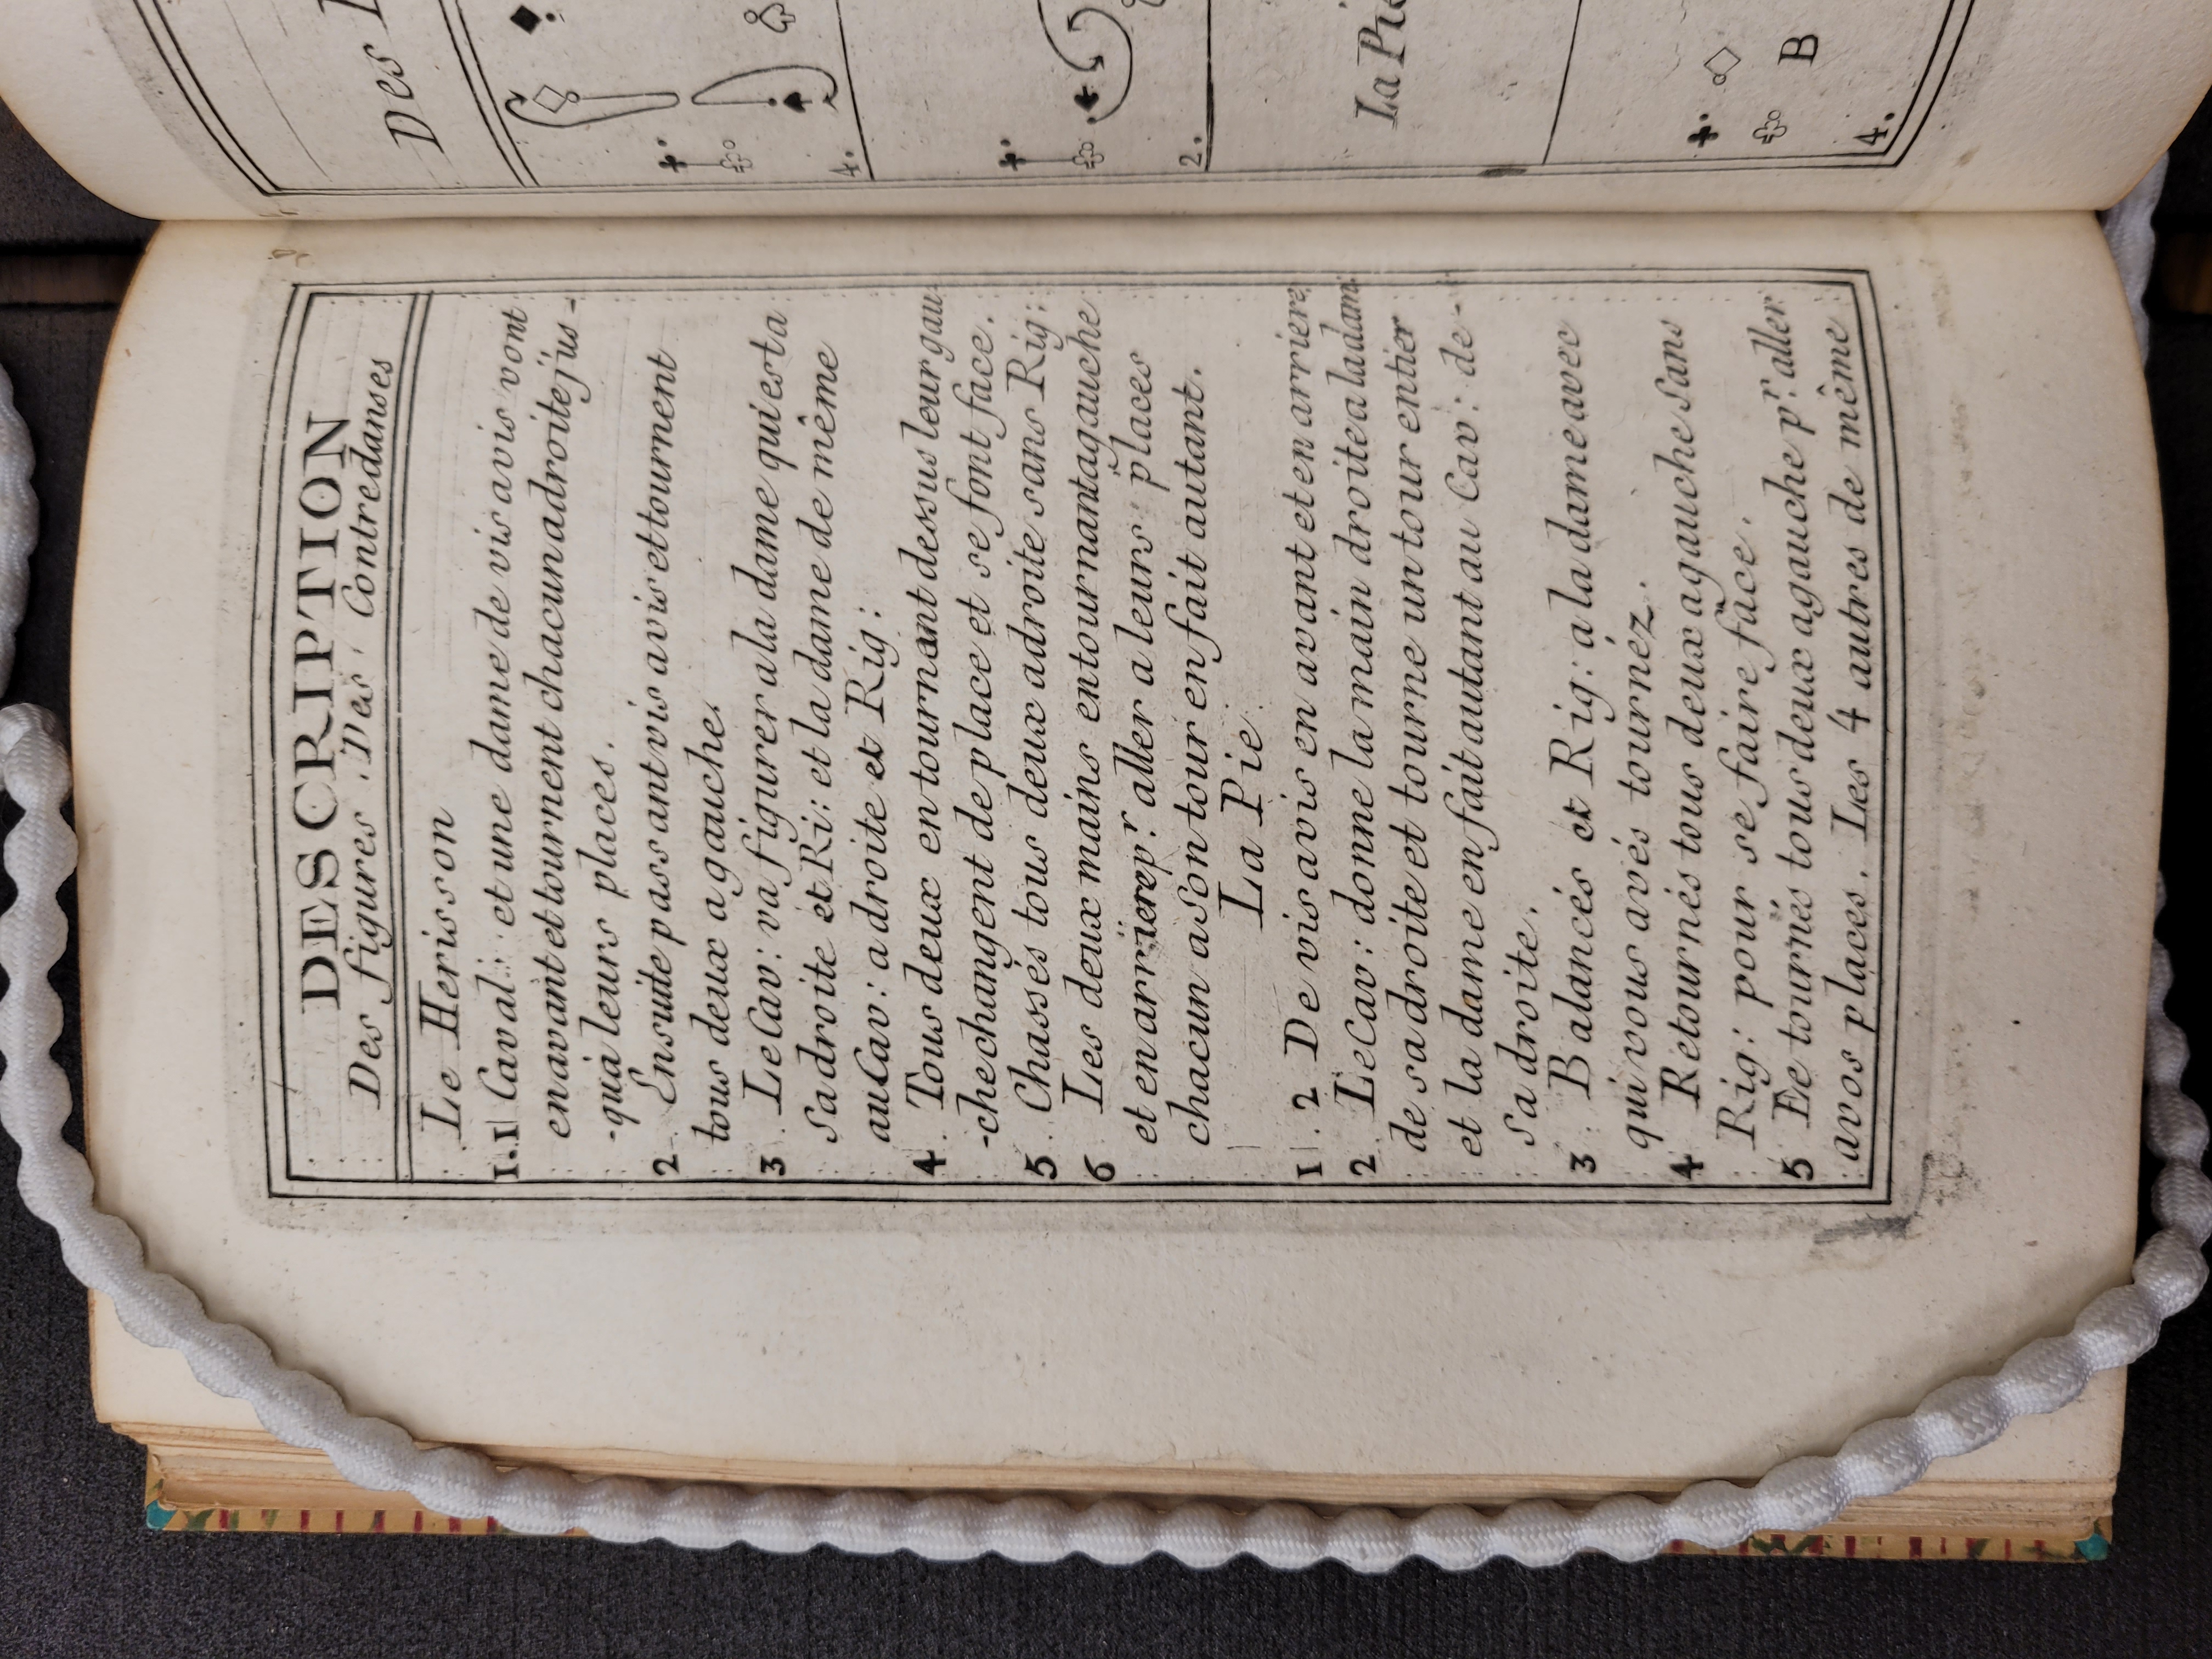 DESCRIPTION
Des figures Des Contredanses
Le Herisson
1.1 Caval: et une dame de vis avis vont
en avant et tournent chacun a droite jus-
-qua leurs places.
2 Ensuite passant vis avis et tournent
tous deux a gauche.
3 Le Cav: va figurer a la dame qui est a
sa droite et Ri: et la dame de même
au Cav: a droite et Rig:
4. Tous deux en tournant dessus leur gau
-che changent de place et se font face.
5. Chassés tous deux a droite sans Rig:
6 Les deux mains en tournant a gauche
et en arriere pr. aller a leurs places
chacun a son tour en fait autant.
La Pie.
1. 2 De vis avis en avant et en arriere
2. Le Cav: donne la main droite a la dam:
de sa droite et tourne un tour entier
et la dame en fait autant au Cav: de-
sa droite.
3. Balancés et Rig: a la dame avec
qui vous avés tournéz.
4 Retournés tous deux a gauche sans
Rig: pour se faire face.
5 Ee tournés tous deux a gauche pr. aller
a vos places. Les 4 autres de même
Des
4.
2.
La Pie
B
4.